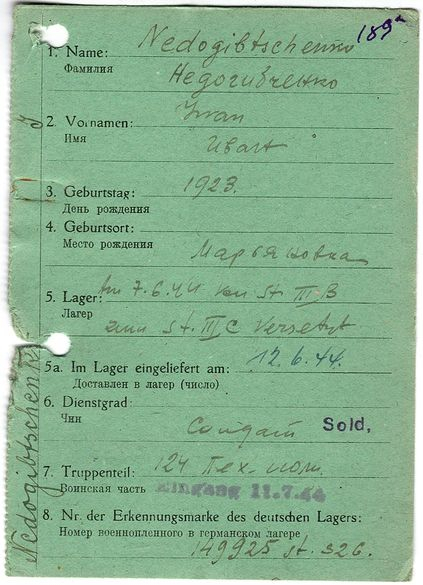 189a
Nedogibtschenko
1. Name:
Фамилия
Недогивченко
Iwan
2. Vornamen:
Имя
Иван
1923.
3. Geburtstag:
День рождения
4. Geburtsort:
Место рождения
Марьяновка
Am 7.6.44 von St. III-B
5. Lager:
Лагер
zum St. III C versetzt
12.6.44.
5a. Im Lager eingeliefert am:
Доставлен в лагер (число)
6. Dienstgrad:
Чин
Солдат
Sold.
124 пех. полк.
7. Truppenteil:
Воинская часть
Eingang 11.7.44
8. Nr. der Erkennungsmarke des deutschen Lagers:
Номер военнопленного в германском лагере
149925 St. 326.
Nedogibtschenko